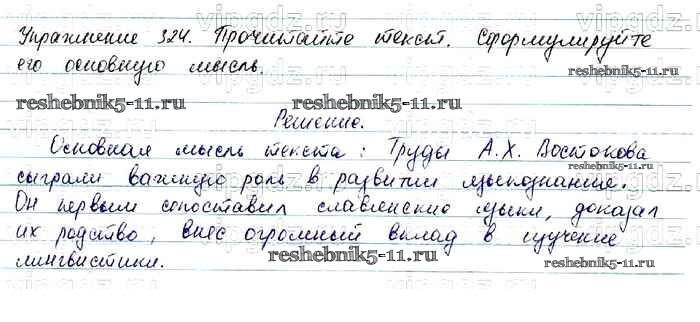 Упражнение 324. Прочитайте текст. Сформулируйте
его основную мысль.
reshebnik5-11.ru reshebnik5-11.ru
Решение.
Основная мысль текста: Труды А.Х. Востокова
сыграли важную роль в развитии языкознание.
Он первым сопоставил славянские языки, доказал
их родство, внес огромный вклад в изучение
лингвистики.
reshebnik5-11.ru reshebnik5-11.ru
vipgdz.ru